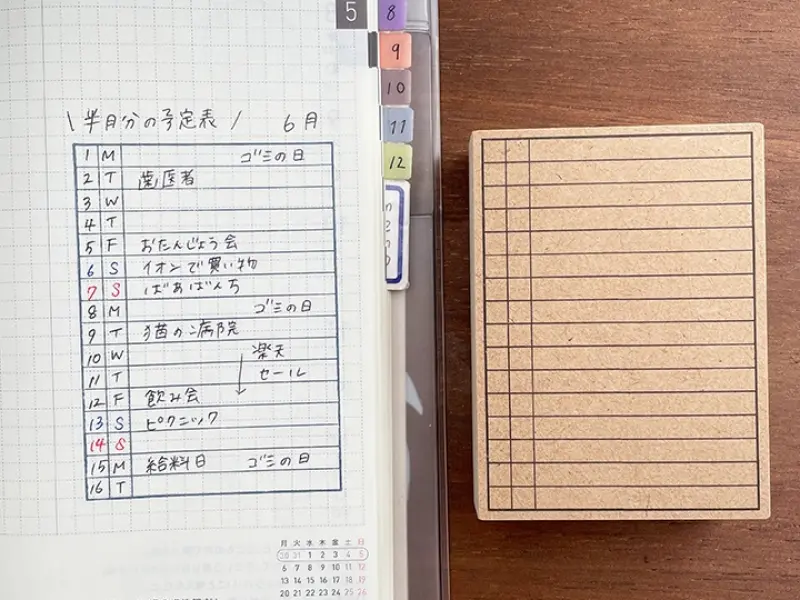 5
8
9
10
11
12
\ 半月分の予定表 / 6月
1 M ゴミの日
2 T 歯医者
3 W
4 T
5 F おたんじょう会
6 S イオンで買い物
7 S ばあばんち
8 M ゴミの日
9 T 猫の病院
10 W 楽天
11 T セール
12 F 飲み会
13 S ピクニック
14 S
15 M 給料日 ゴミの日
16 T
月 火 水 木 金 土 日
30 31 1 2 3 4 5
6 7 8 9 10 11 12
13 14 15 16 17 18 19
20 21 22 23 24 25 26